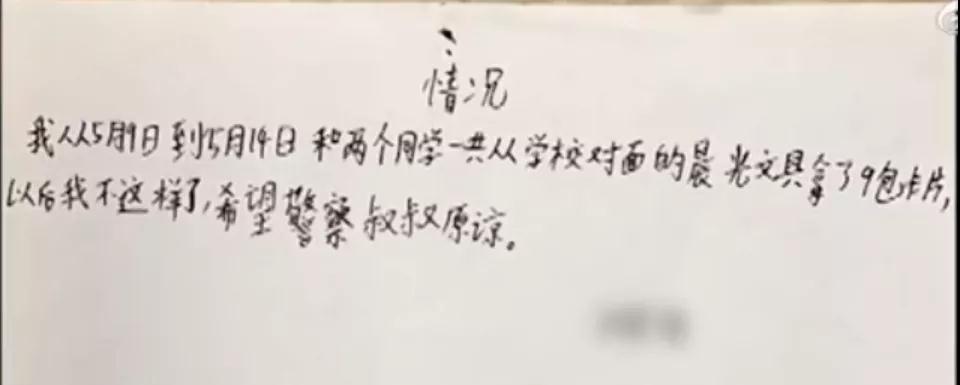 情况
我从5月9日到5月14日和两个同学一共从学校对面的晨光文具拿了9包卡片,
以后我不这样了,希望警察叔叔原谅。